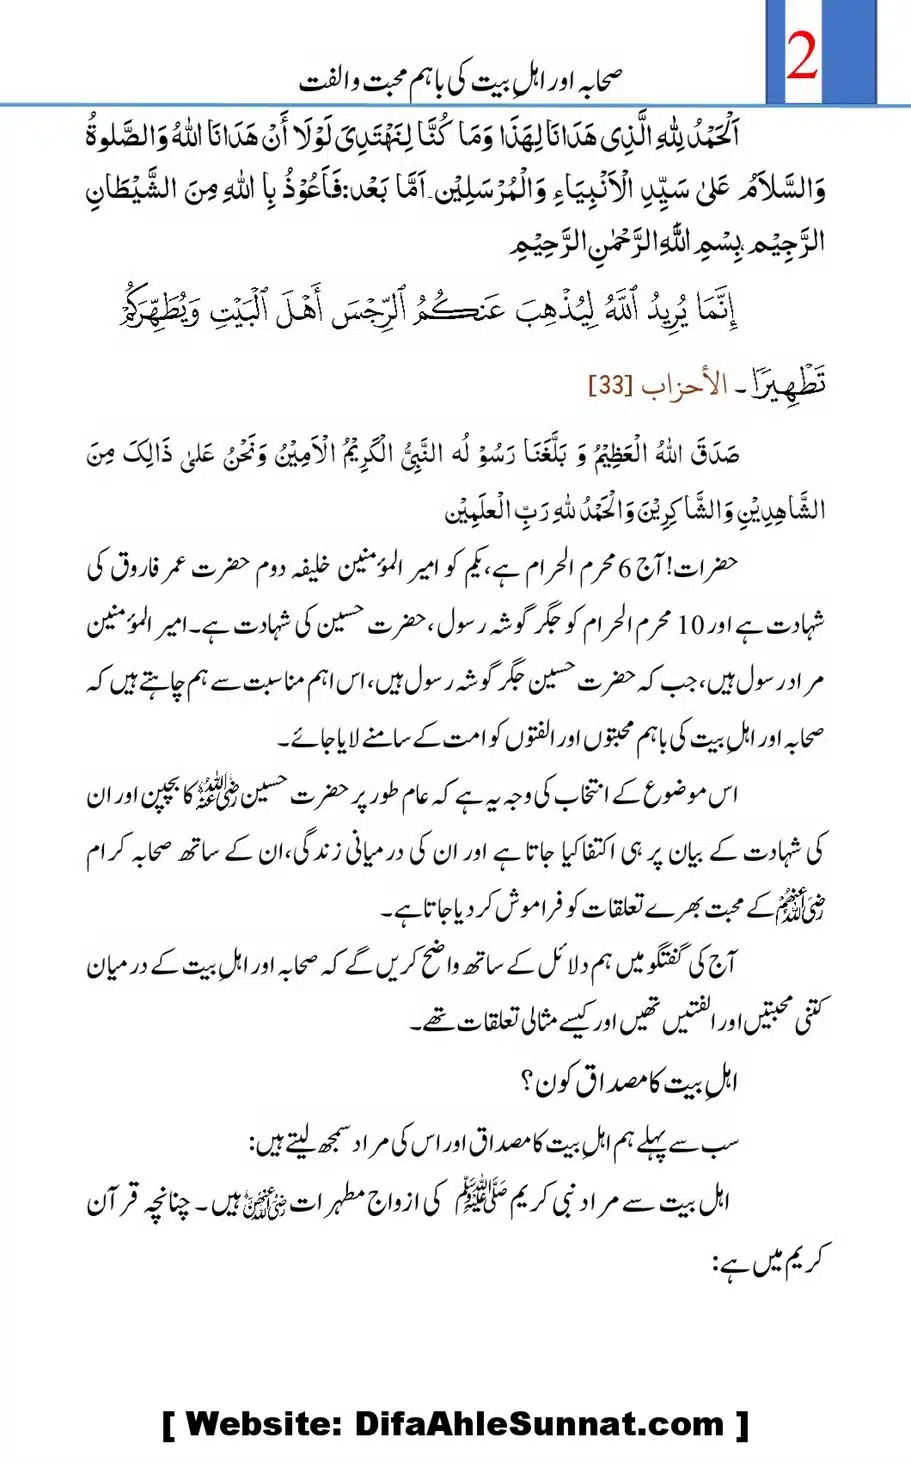 2
صحابہ اور اہلِ بیت کی باہم محبت و الفت
اَلْحَمْدُ لِلّٰہِ الَّذِی ھَدَانَا لِھَذَا وَمَا کُنَّا لِنَھْتَدِیَ لَوْلَا أَنْ ھَدَانَا اللّٰہُ وَالصَّلٰوۃُ
وَالسَّلاَمُ عَلیٰ سَیِّدِ الْاَنْبِیَاءِ وَالْمُرْسَلِیْن۔اَمَّا بَعْد:فَاَعُوْذُ بِا اللّٰہِ مِنَ الشَّیْطَانِ
الرَّجِیْم،بِسْمِ اللّٰہِ الرَّحْمٰنِ الرَّحِیْمِ
إِنَّمَا يُرِيدُ ٱللَّهُ لِيُذْهِبَ عَنكُمُ ٱلرِّجْسَ أَهْلَ ٱلْبَيْتِ وَيُطَهِّرَكُمْ
تَطْهِيرًا۔ الأحزاب [33]
صَدَقَ اللّٰہُ الْعَظِیْمُ وَ بَلَّغَنَا رَسُوْ لُه النَّبِیُّ الْکَرِیْمُ الْاَمِیْنُ وَنَحْنُ عَلیٰ ذَالِکَ مِنَ
الشَّاھِدِیْنِ وَالشَّاکِرِیْنَ وَالْحَمْدُ للہِ رَبِّ الْعلَمِیْن
حضرات!آج 6 محرم الحرام ہے،یکم کو امیر المؤمنین خلیفہ دوم حضرت عمر فاروق کی
شہادت ہے اور 10 محرم الحرام کو جگر گوشہ رسول ،حضرت حسین کی شہادت ہے۔امیر المؤمنین
مراد رسول ہیں،جب کہ حضرت حسین جگر گوشہ رسول ہیں،اس اہم مناسبت سے ہم چاہتے ہیں کہ
صحابہ اور اہلِ بیت کی باہم محبتوں اور الفتوں کو امت کے سامنے لایا جائے۔
اس موضوع کے انتخاب کی وجہ یہ ہے کہ عام طور پر حضرت حسین رضی اللہ عنہ کا بچپن اور ان
کی شہادت کے بیان پر ہی اکتفا کیا جاتا ہے اور ان کی درمیانی زندگی،ان کے ساتھ صحابہ کرام
رضی اللہ عنہم کے محبت بھرے تعلقات کو فراموش کر دیا جاتا ہے۔
آج کی گفتگو میں ہم دلائل کے ساتھ واضح کریں گے کہ صحابہ اور اہلِ بیت کے درمیان
کتنی محبتیں اور الفتیں تھیں اور کیسے مثالی تعلقات تھے۔
اہلِ بیت کا مصداق کون؟
سب سے پہلے ہم اہلِ بیت کا مصداق اور اس کی مراد سمجھ لیتے ہیں:
اہل بیت سے مراد نبی کریم ﷺ کی ازواج مطہرات رضی اللہ عنھن ہیں۔چنانچہ قرآن
کریم میں ہے:
[ Website: DifaAhleSunnat.com ]